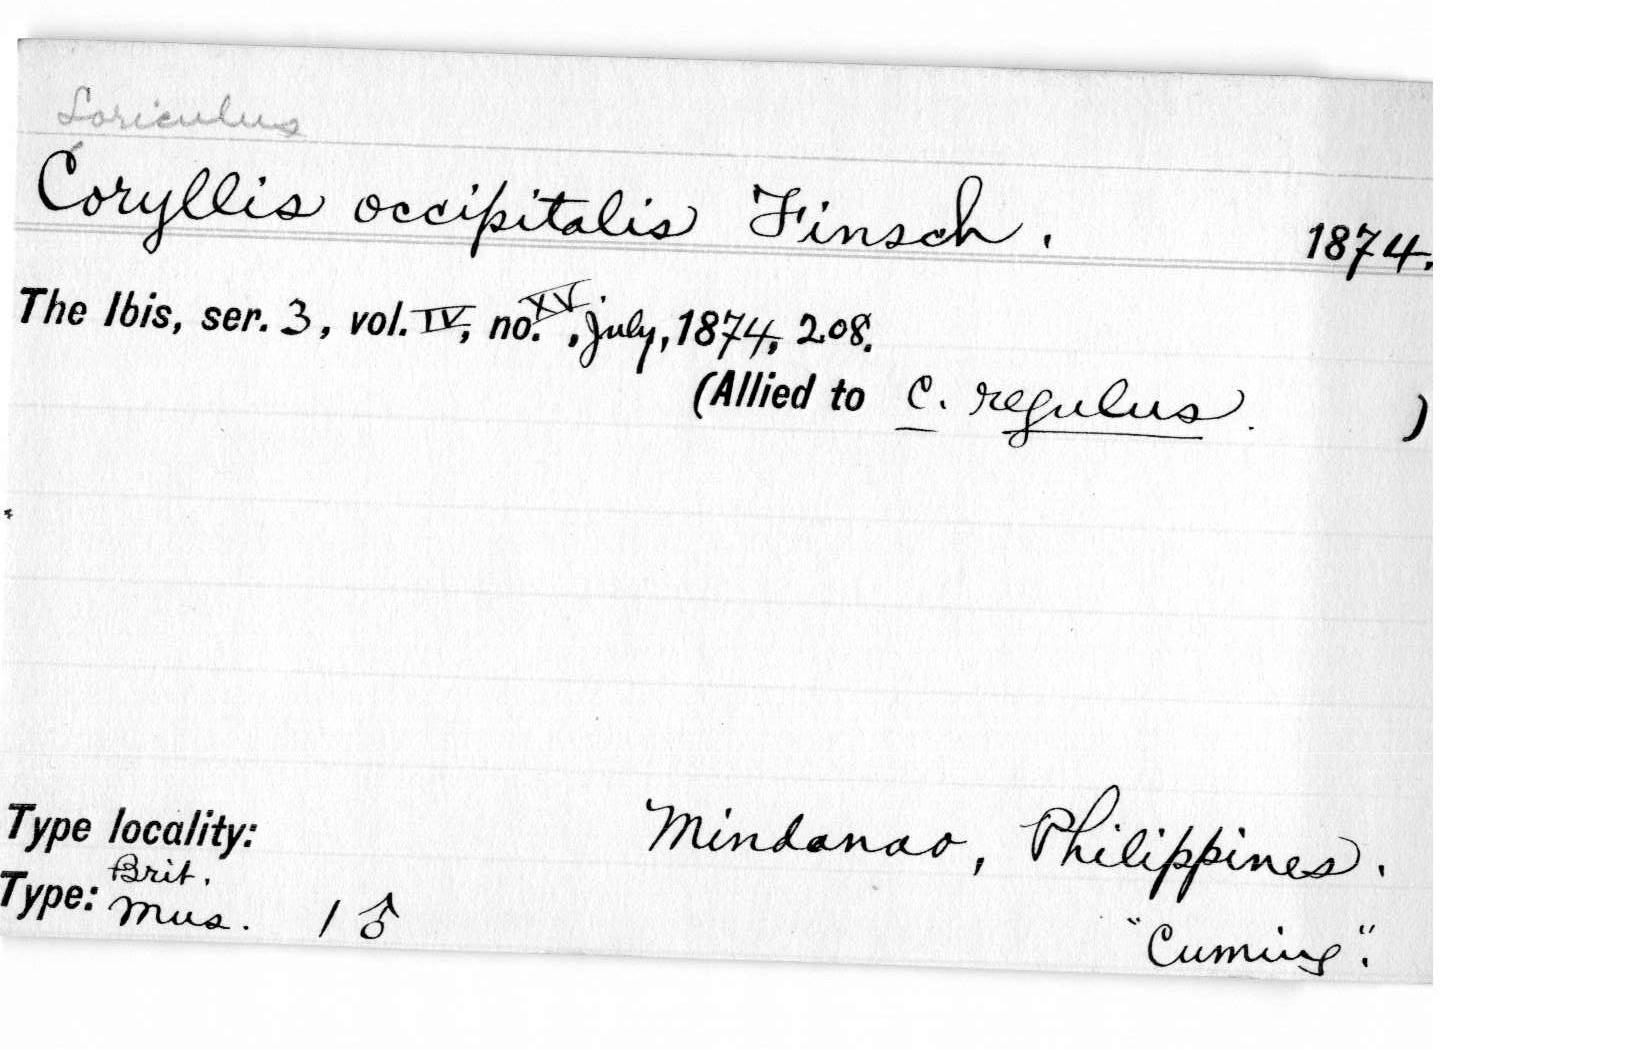 Loriculus
Coryllis occipitalis Finsch. 1874.
The Ibis, ser. 3, vol. IV, no. XV, July, 1874, 208.
(Allied to C. regulus. )
Type locality: Mindanao, Philippines.
Type: Brit. Mus. 1 ♂ "Cuming".